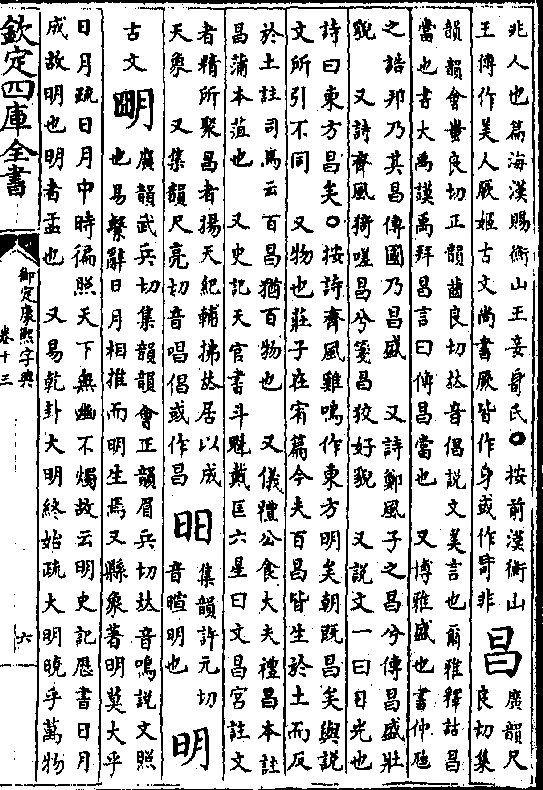 兆人也篇海漢賜衡山王妾氏○按前漢衡山
王傳作美人厥姬古文尚書厥皆作身或作非
昌
廣韻尺
良切集
韻韻會蚩良切正韻齒良切𠀤音倡說文美言也爾雅釋詁昌
當也書大禹謨禹拜昌言曰傳昌當也 又博雅盛也書仲虺
之誥邦乃其昌傳國乃昌盛 又詩鄭風子之昌兮傳昌盛壯
貌 又詩齊風猗嗟昌兮箋昌狡好貌 又說文一曰日光也
詩曰東方昌矣○按詩齊風雞鳴作東方明矣朝既昌矣與說
文所引不同 又物也莊子在宥篇今夫百昌皆生於土而反
於土註司馬云百昌猶百物也 又儀禮公食大夫禮昌本註
昌蒲本菹也 又史記天官書斗魁戴匡六星曰文昌宮註文
者精所聚昌者揚天紀輔拂𠀤居以成
天象 又集韻尺亮切音唱倡或作昌
昍
集韻許元切
音暄明也
明
古文
朙
廣韻武兵切集韻韻會正韻眉兵切𠀤音鳴說文照
也易繫辭日月相推而明生焉又縣象著明莫大乎
日月疏日月中時徧照天下無幽不燭故云明史記歴書日月
成故明也明者孟也 又易乾卦大明終始疏大明曉乎萬物
欽定四庫全書
御定康熙字典
卷十三
六